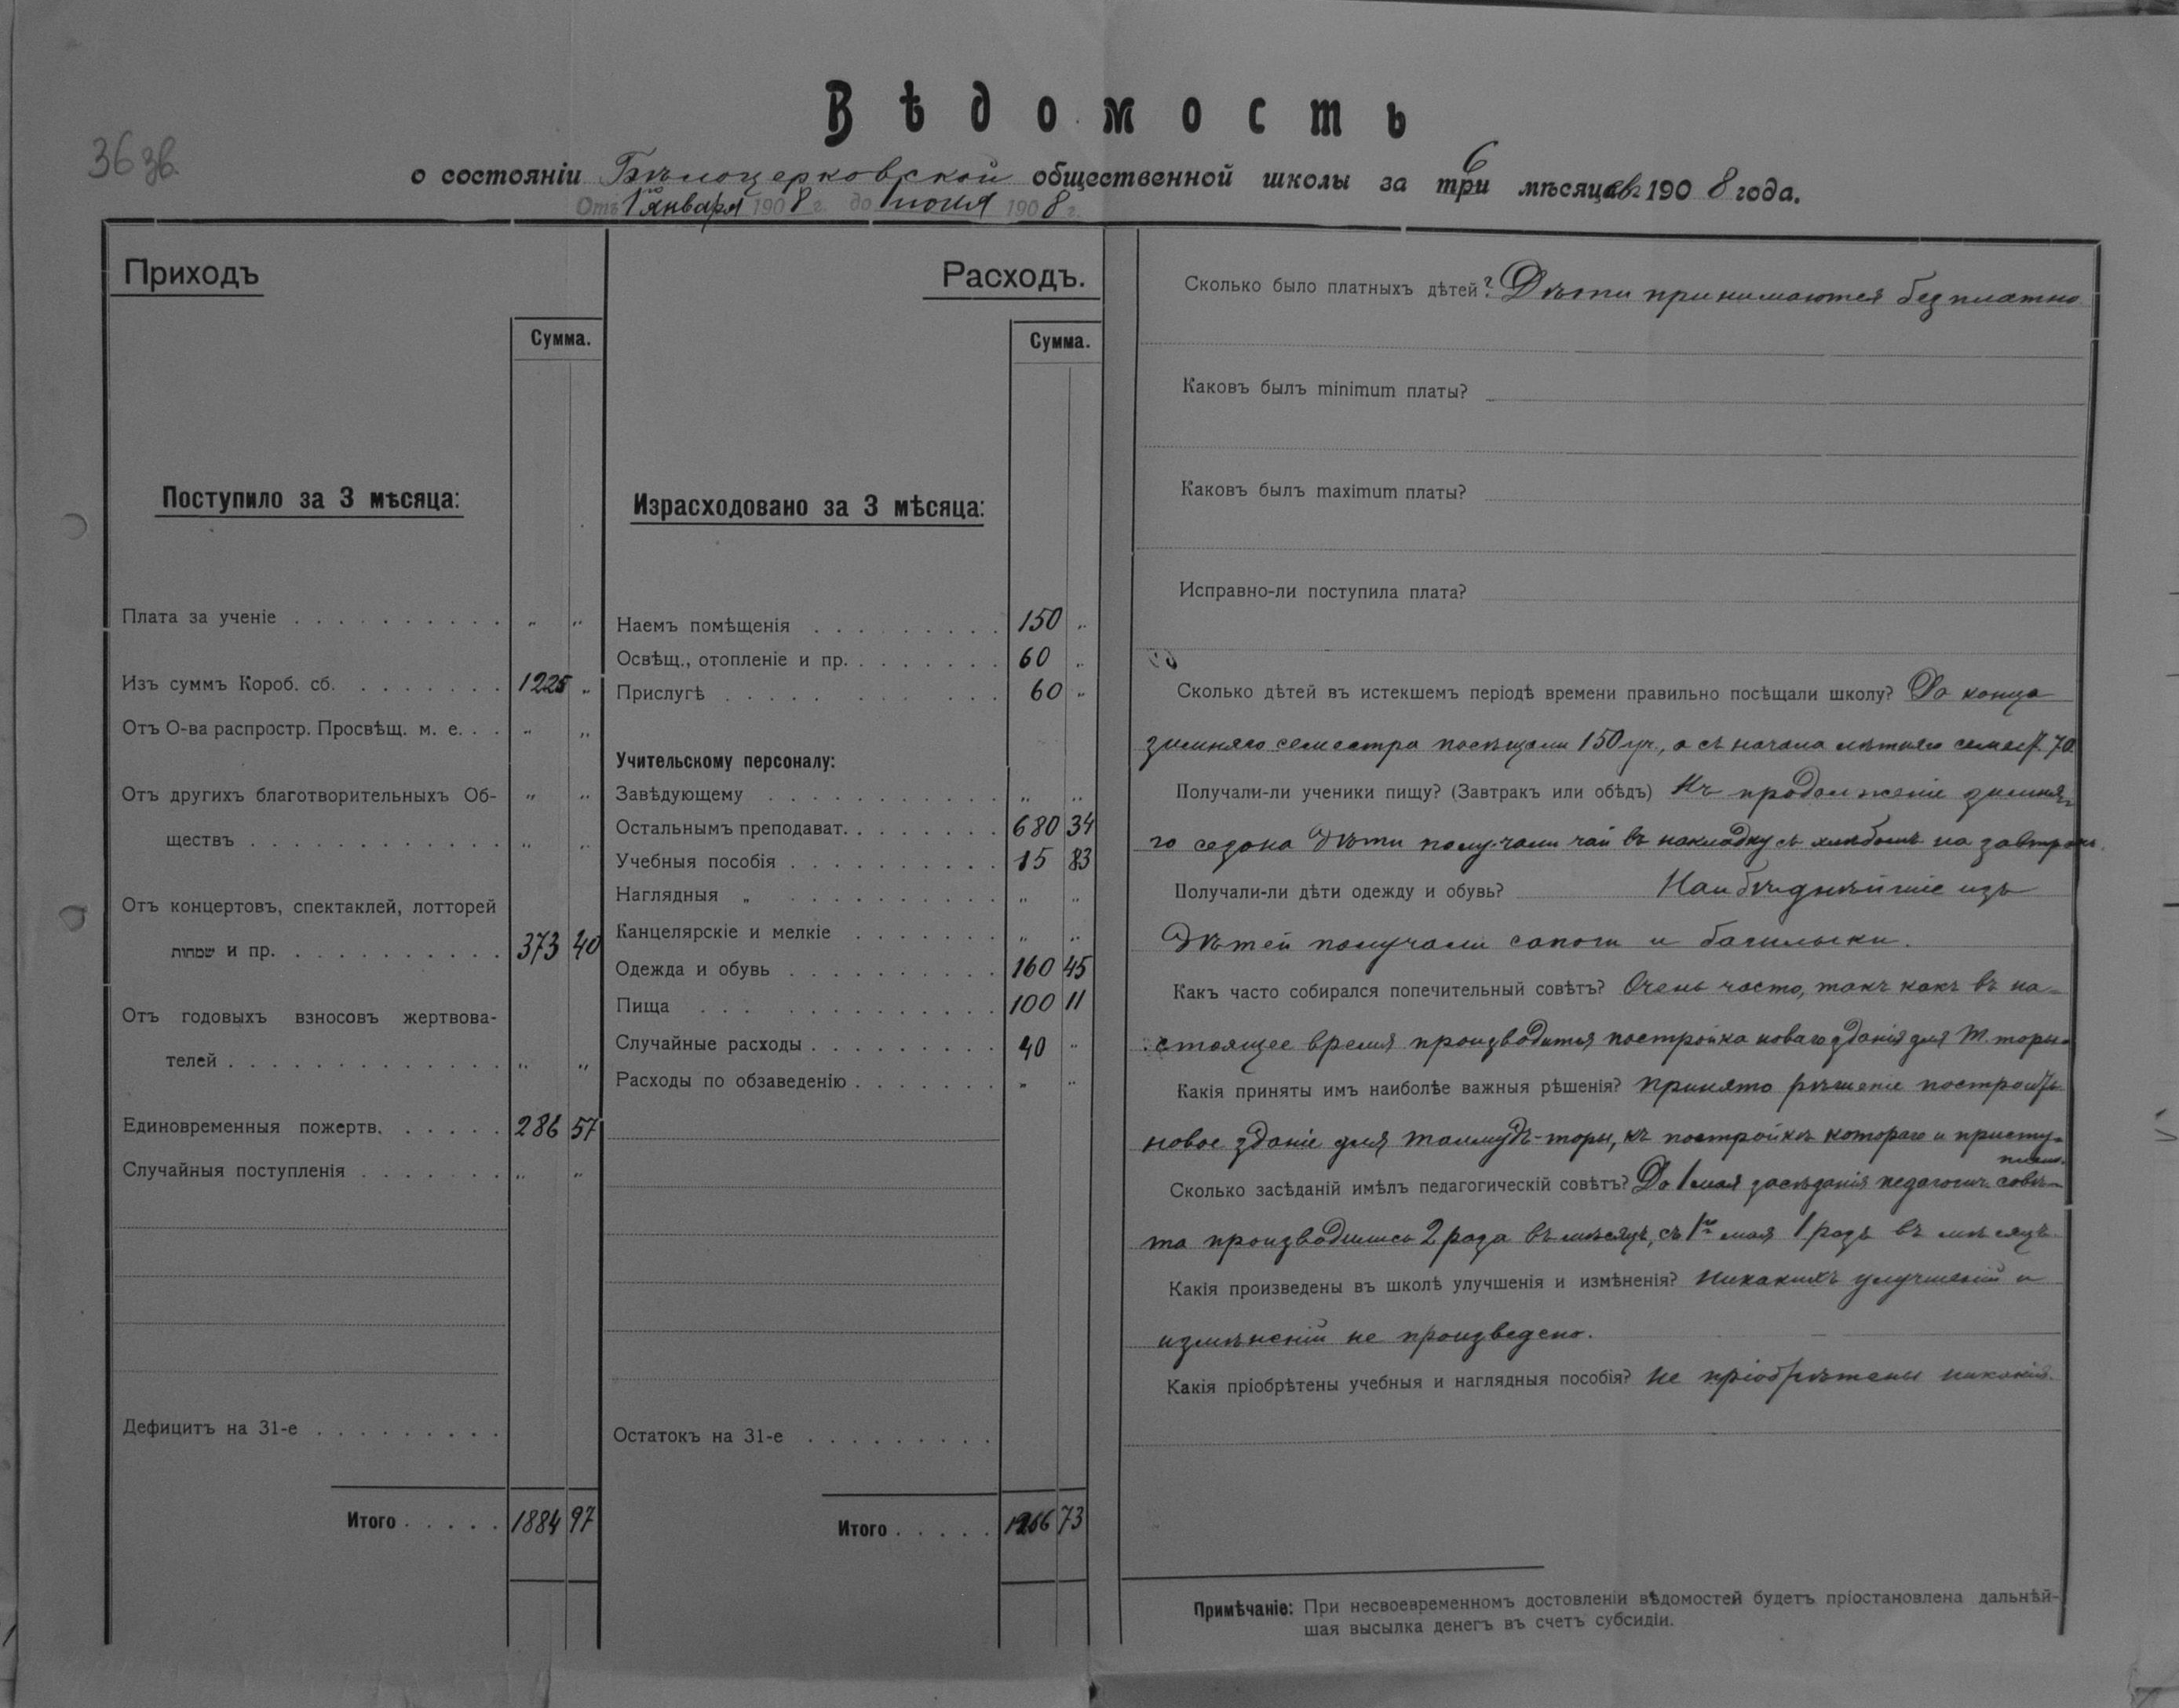 Вѣдомость
36 зв.
о состояніи Бѣлоцерковской общественной школы за три 6 мѣсяцевъ 1908 года.
Отъ 1го января 1908 г. до 1 июля 1908 г.
Приходъ
Сумма.
Поступило за 3 мѣсяца:
Плата за ученіе . . . . . . . . . . „ „
Изъ суммъ Короб. сб. . . . . . . . 1225 „
Отъ О-ва распростр. Просвѣщ. м. е. . . „ „
Отъ другихъ благотворительныхъ Об- „ „
ществъ . . . . . . . . . . . . „ „
Отъ концертовъ, спектаклей, лотторей
שמחות и пр. . . . . . . . . . . 373 40
Отъ годовыхъ взносовъ жертвова-
телей . . . . . . . . . . . . . „ „
Единовременныя пожертв. . . . . . 286 57
Случайныя поступленія . . . . . . . „ „
Дефицитъ на 31-е . . . . . . . . .
Итого . . . . . 1884 97
Расходъ.
Сумма.
Израсходовано за 3 мѣсяца:
Наемъ помѣщенія . . . . . . . . . 150 „
Освѣщ., отопленіе и пр. . . . . . . . 60 „
Прислугѣ . . . . . . . . . . . 60 „
Учительскому персоналу:
Завѣдующему . . . . . . . . . . . „ „
Остальнымъ преподават. . . . . . . . 680 34
Учебныя пособія . . . . . . . . . . 15 83
Наглядныя „ . . . . . . . . . . „ „
Канцелярскіе и мелкіе . . . . . . . „ „
Одежда и обувь . . . . . . . . . . 160 45
Пища . . . . . . . . . . . . . 100 11
Случайные расходы . . . . . . . . . 40 „
Расходы по обзаведенію . . . . . . . „ „
Остатокъ на 31-е . . . . . . . . .
Итого . . . . . 1266 73
Сколько было платныхъ дѣтей? Дѣти принимаются безплатно
Каковъ былъ minimum платы?
Каковъ былъ maximum платы?
Исправно-ли поступила плата?
Сколько дѣтей въ истекшемъ періодѣ времени правильно посѣщали школу? До конца
зимняго семестра посѣщали 150 уч., а съ начала лѣтняго семест. 70.
Получали-ли ученики пищу? (Завтракъ или обѣдъ) Въ продолженіе зимня-
го сезона дѣти получали чай въ накладку съ хлѣбомъ на завтракъ.
Получали-ли дѣти одежду и обувь? Наибѣднѣйшіе изъ
дѣтей получали сапоги и башлыки.
Какъ часто собирался попечительный совѣтъ? Очень часто, такъ какъ въ на-
стоящее время производится постройка новаго зданія для Т. торы.
Какія приняты имъ наиболѣе важныя рѣшенія? Принято рѣшеніе построить
новое зданіе для талмудъ-торы, къ постройкѣ котораго и присту-
плено.
Сколько засѣданій имѣлъ педагогическій совѣтъ? До 1 мая засѣданія педагогич. совѣ-
та производились 2 раза въ мѣсяцъ, съ 1го мая 1 разъ въ мѣсяцъ.
Какія произведены въ школѣ улучшенія и измѣненія? Никакихъ улучшеній и
измѣненій не произведено.
Какія пріобрѣтены учебныя и наглядныя пособія? Не пріобрѣтены никакія.
Примѣчаніе: При несвоевременномъ достовленіи вѣдомостей будетъ пріостановлена дальнѣй-
шая высылка денегъ въ счетъ субсидіи.